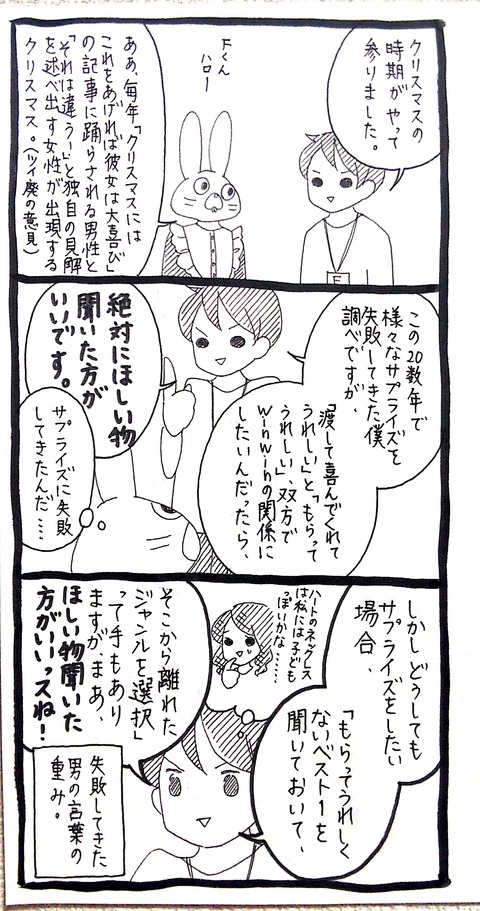 クリスマスの
時期がやって
参りました。
Fくん
ハロー
ああ、毎年「クリスマスには
これをあげれば彼女は大喜び」
の記事に踊らされる男性と
「それは違うー」と独自の見解
を述べ出す女性が出現する
クリスマス。(ツイ廃の意見)
F
この20数年で
様々なサプライズを
失敗してきた僕
調べですが、
「渡して喜んでくれて
うれしい」と「もらって
うれしい」、双方で
winwinの関係に
したいんだったら、
絶対にほしい物
聞いた方が
いいです。
サプライズに失敗
してきたんだ……
しかしどうしても
サプライズをしたい
場合、
「もらってうれしく
ないベスト1を
聞いておいて、
ハートのネックレス
は私には子ども
っぽいかな……
そこから離れた
ジャンルを選択」
って手もあり
ますが、まあ、
ほしい物聞いた
方がいいっスね!
失敗してきた
男の言葉の
重み。